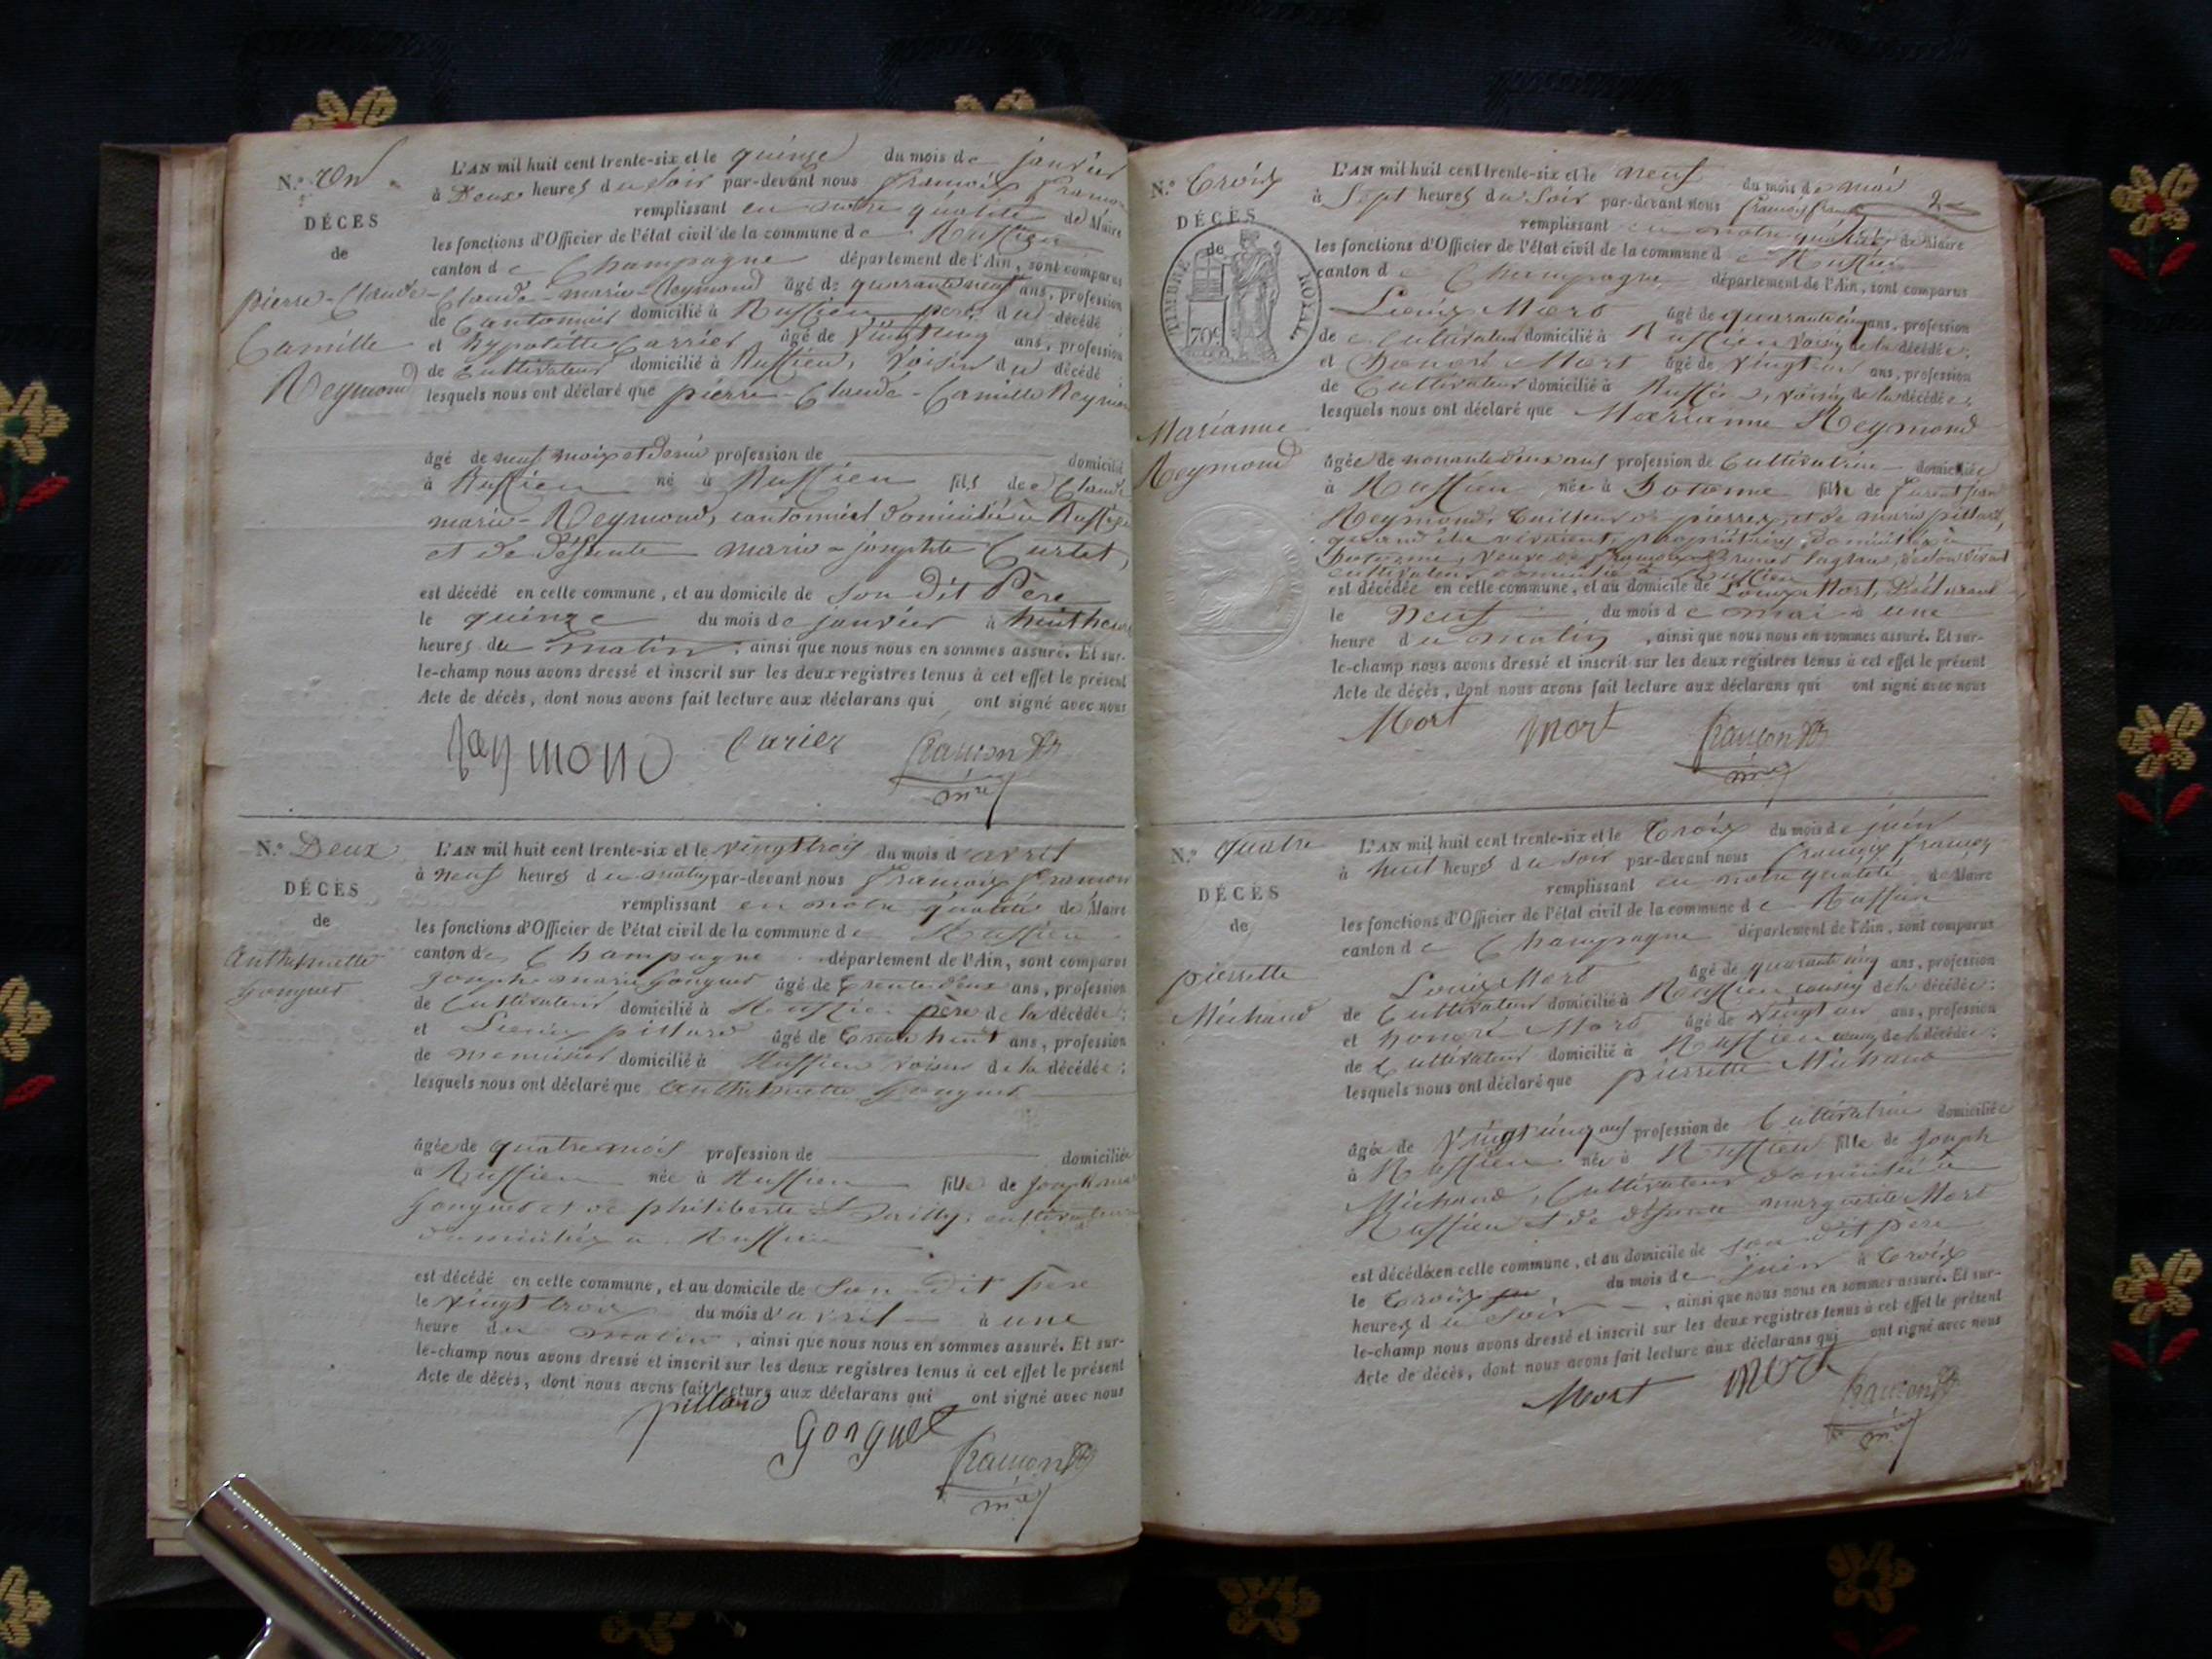 N.º Un
DÉCÈS
de
pierre-Claude-
Camille
Reymond
L'AN mil huit cent trente-six et le quinze du mois de janvier
à Deux heures du soir par-devant nous françois
remplissant en notre qualité de Maire
les fonctions d'Officier de l'état civil de la commune de Ruffieu
canton de Champagne département de l'Ain, sont comparus
Claude-marie-Reymond âgé de quarante neuf ans, profession
de Cantonnier domicilié à Ruffieu, père du décédé
et hypolitte Carrier âgé de vingt cinq ans, profession
de Cultivateur domicilié à Ruffieu, voisin du décédé ;
lesquels nous ont déclaré que pierre-Claude-Camille Reymond
âgé de neuf mois et demi profession de domicilié
à Ruffieu né à Ruffieu fils de Claude
marie-Reymond, cantonnier domicilié à Ruffieu
et de défunte marie-josephte Curtet,
est décédé en cette commune, et au domicile de son dit Père
le quinze du mois de janvier à huit heures
heures du matin, ainsi que nous nous en sommes assuré. Et sur-
le-champ nous avons dressé et inscrit sur les deux registres tenus à cet effet le présent
Acte de décès, dont nous avons fait lecture aux déclarans qui ont signé avec nous
Raymond Carier
N.º Deux
DÉCÈS
de
Anthelmette
Gonguet
L'AN mil huit cent trente-six et le vingt trois du mois d'avril
à neuf heures du matin par-devant nous françois
remplissant en notre qualité de Maire
les fonctions d'Officier de l'état civil de la commune de Ruffieu
canton de Champagne département de l'Ain, sont comparus
joseph marie Gonguet âgé de trente deux ans, profession
de Cultivateur domicilié à Ruffieu père de la décédée ;
et Louis pillard âgé de trente huit ans, profession
de menuisier domicilié à Ruffieu voisin de la décédée ;
lesquels nous ont déclaré que Anthelmette Gonguet
âgée de quatre mois profession de domiciliée
à Ruffieu née à Ruffieu fille de joseph marie
Gonguet et de philiberte cultivateurs
domiciliés à Ruffieu
est décédé en cette commune, et au domicile de son dit Père
le vingt trois du mois d'avril à une
heure du matin, ainsi que nous nous en sommes assuré. Et sur-
le-champ nous avons dressé et inscrit sur les deux registres tenus à cet effet le présent
Acte de décès, dont nous avons fait lecture aux déclarans qui ont signé avec nous
pillard
Gonguet
N.º Trois
DÉCÈS
de
TIMBRE ROYAL
70c
Marianne
Reymond
2
L'AN mil huit cent trente-six et le neuf du mois de mai
à Sept heures du Soir par-devant nous françois
remplissant en notre qualité de Maire
les fonctions d'Officier de l'état civil de la commune de Ruffieu
canton de Champagne département de l'Ain, sont comparus
Louis Mort âgé de quarante cinq ans, profession
de Cultivateur domicilié à Ruffieu voisin de la décédée ;
et Honoré Mort âgé de vingt un ans, profession
de Cultivateur domicilié à Ruffieu, voisin de la décédée ;
lesquels nous ont déclaré que Marianne Reymond
âgée de nonante deux ans profession de Cultivatrice domiciliée
à Ruffieu née à fille de
Reymond, tailleur de pierres, et de marie pillard,
quand ils vivaient, propriétaires domiciliés à
veuve de françois Brunet de son vivant
cultivateur domicilié à Ruffieu
est décédée en cette commune, et au domicile de Louis Mort, Déclarant
le Neuf du mois de mai à une
heure du matin, ainsi que nous nous en sommes assuré. Et sur-
le-champ nous avons dressé et inscrit sur les deux registres tenus à cet effet le présent
Acte de décès, dont nous avons fait lecture aux déclarans qui ont signé avec nous
Mort Mort
N.º quatre
DÉCÈS
de
pierrette
Michaud
L'AN mil huit cent trente-six et le trois du mois de juin
à huit heures du soir par-devant nous françois
remplissant en notre qualité de Maire
les fonctions d'Officier de l'état civil de la commune de Ruffieu
canton de Champagne département de l'Ain, sont comparus
Louis Mort âgé de quarante cinq ans, profession
de Cultivateur domicilié à Ruffieu cousin de la décédée ;
et honoré Mort âgé de vingt un ans, profession
de Cultivateur domicilié à Ruffieu cousin de la décédée ;
lesquels nous ont déclaré que pierrette Michaud
âgée de vingt cinq ans profession de Cultivatrice domiciliée
à Ruffieu née à Ruffieu fille de joseph
Michaud, Cultivateur domicilié à
Ruffieu et de défunte marguerite Mort
est décédée en cette commune, et au domicile de son dit père
le trois du mois de juin à trois
heures du soir, ainsi que nous nous en sommes assuré. Et sur-
le-champ nous avons dressé et inscrit sur les deux registres tenus à cet effet le présent
Acte de décès, dont nous avons fait lecture aux déclarans qui ont signé avec nous
Mort Mort